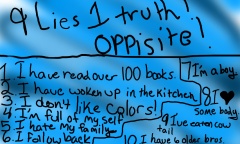 9 Lies 1 truth!
OPPISITE!
1. I have read over 100 books.
2. I have woken up in the kitchen
3. I don't like colors!
4. I'm full of my self
5. I hate my family
6. I follow back
7 I'm a boy.
8 I ♥
Some body
9 Ive eaten cow
tail
10 I have 6 older bros.